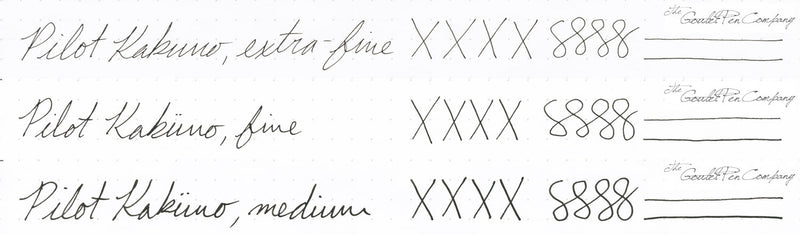 Pilot Kakuno, extra-fine XXXX 8888 The Goulet Pen Company
Pilot Kaküno, fine XXXX 8888 The Goulet Pen Company
Pilot Kaküno, medium XXXX 8888 The Goulet Pen Company